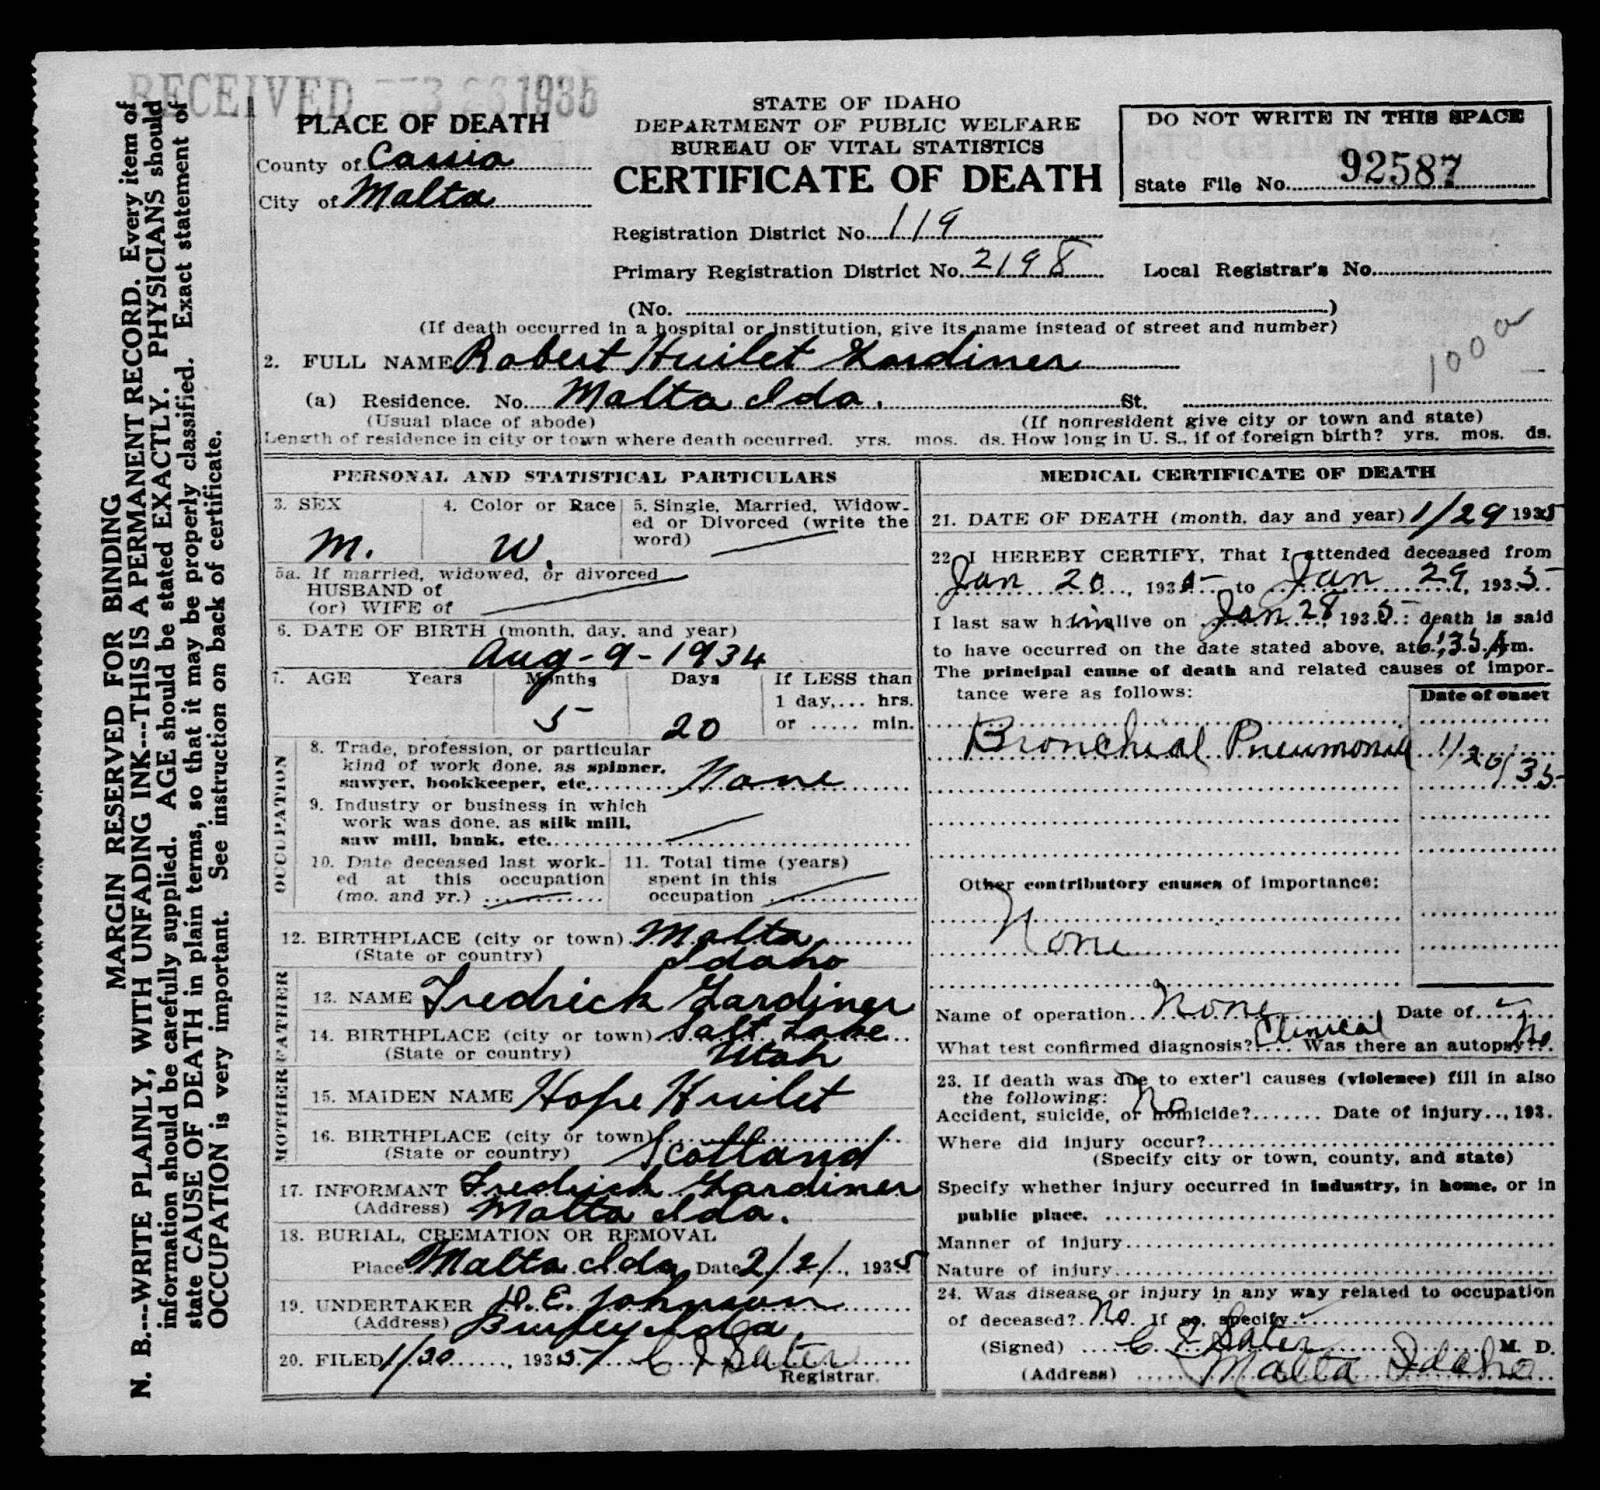 RECEIVED 1935
PLACE OF DEATH
County of Cassia
City of Malta
STATE OF IDAHO
DEPARTMENT OF PUBLIC WELFARE
BUREAU OF VITAL STATISTICS
CERTIFICATE OF DEATH
DO NOT WRITE IN THIS SPACE
State File No. 92587
Registration District No. 119
Primary Registration District No. 2198 Local Registrar's No.
(No. )
(If death occurred in a hospital or institution, give its name instead of street and number)
2. FULL NAME Robert Huilet Gardiner
(a) Residence. No. Malta Ida. St.
(Usual place of abode) (If nonresident give city or town and state)
Length of residence in city or town where death occurred. yrs. mos. ds. How long in U. S., if of foreign birth? yrs. mos. ds.
PERSONAL AND STATISTICAL PARTICULARS
3. SEX
M.
4. Color or Race
W.
5. Single, Married, Widow-
ed or Divorced (write the
word)
5a. If married, widowed, or divorced
HUSBAND of
(or) WIFE of
6. DATE OF BIRTH (month, day, and year)
Aug-9-1934
7. AGE Years Months Days
5 20
If LESS than
1 day,.... hrs.
or ..... min.
OCCUPATION
8. Trade, profession, or particular
kind of work done, as spinner,
sawyer, bookkeeper, etc. None
9. Industry or business in which
work was done, as silk mill,
saw mill, bank, etc.
10. Date deceased last work-
ed at this occupation
(mo. and yr.)
11. Total time (years)
spent in this
occupation
12. BIRTHPLACE (city or town) Malta
(State or country) Idaho
FATHER
13. NAME Fredrick Gardiner
14. BIRTHPLACE (city or town) Salt Lake
(State or country) Utah
MOTHER
15. MAIDEN NAME Hope Huilet
16. BIRTHPLACE (city or town)
(State or country) Scotland
17. INFORMANT Fredrick Gardiner
(Address) Malta Ida.
18. BURIAL, CREMATION OR REMOVAL
Place Malta Ida. Date 2/2/, 1935
19. UNDERTAKER J.E. Johnson
(Address) Burley Ida.
20. FILED 1/30, 1935 C F Sater
Registrar.
MEDICAL CERTIFICATE OF DEATH
21. DATE OF DEATH (month, day and year) 1/29 1935
22. I HEREBY CERTIFY, That I attended deceased from
Jan 20, 1935 to Jan 29, 1935
I last saw him alive on Jan 28 1935: death is said
to have occurred on the date stated above, at 6:35 A m.
The principal cause of death and related causes of impor-
tance were as follows:
Date of onset
Bronchial Pneumonia 1/20/35
Other contributory causes of importance:
None
Name of operation None Date of
What test confirmed diagnosis? Clinical Was there an autopsy? No
23. If death was due to exter'l causes (violence) fill in also
the following:
Accident, suicide, or homicide? No Date of injury , 193.
Where did injury occur?
(Specify city or town, county, and state)
Specify whether injury occurred in industry, in home, or in
public place.
Manner of injury
Nature of injury
24. Was disease or injury in any way related to occupation
of deceased? No If so, specify
(Signed) C F Sater M. D.
(Address) Malta Idaho
MARGIN RESERVED FOR BINDING
N. B.---WRITE PLAINLY, WITH UNFADING INK---THIS IS A PERMANENT RECORD. Every item of
information should be carefully supplied. AGE should be stated EXACTLY. PHYSICIANS should
state CAUSE OF DEATH in plain terms, so that it may be properly classified. Exact statement of
OCCUPATION is very important. See instruction on back of certificate.